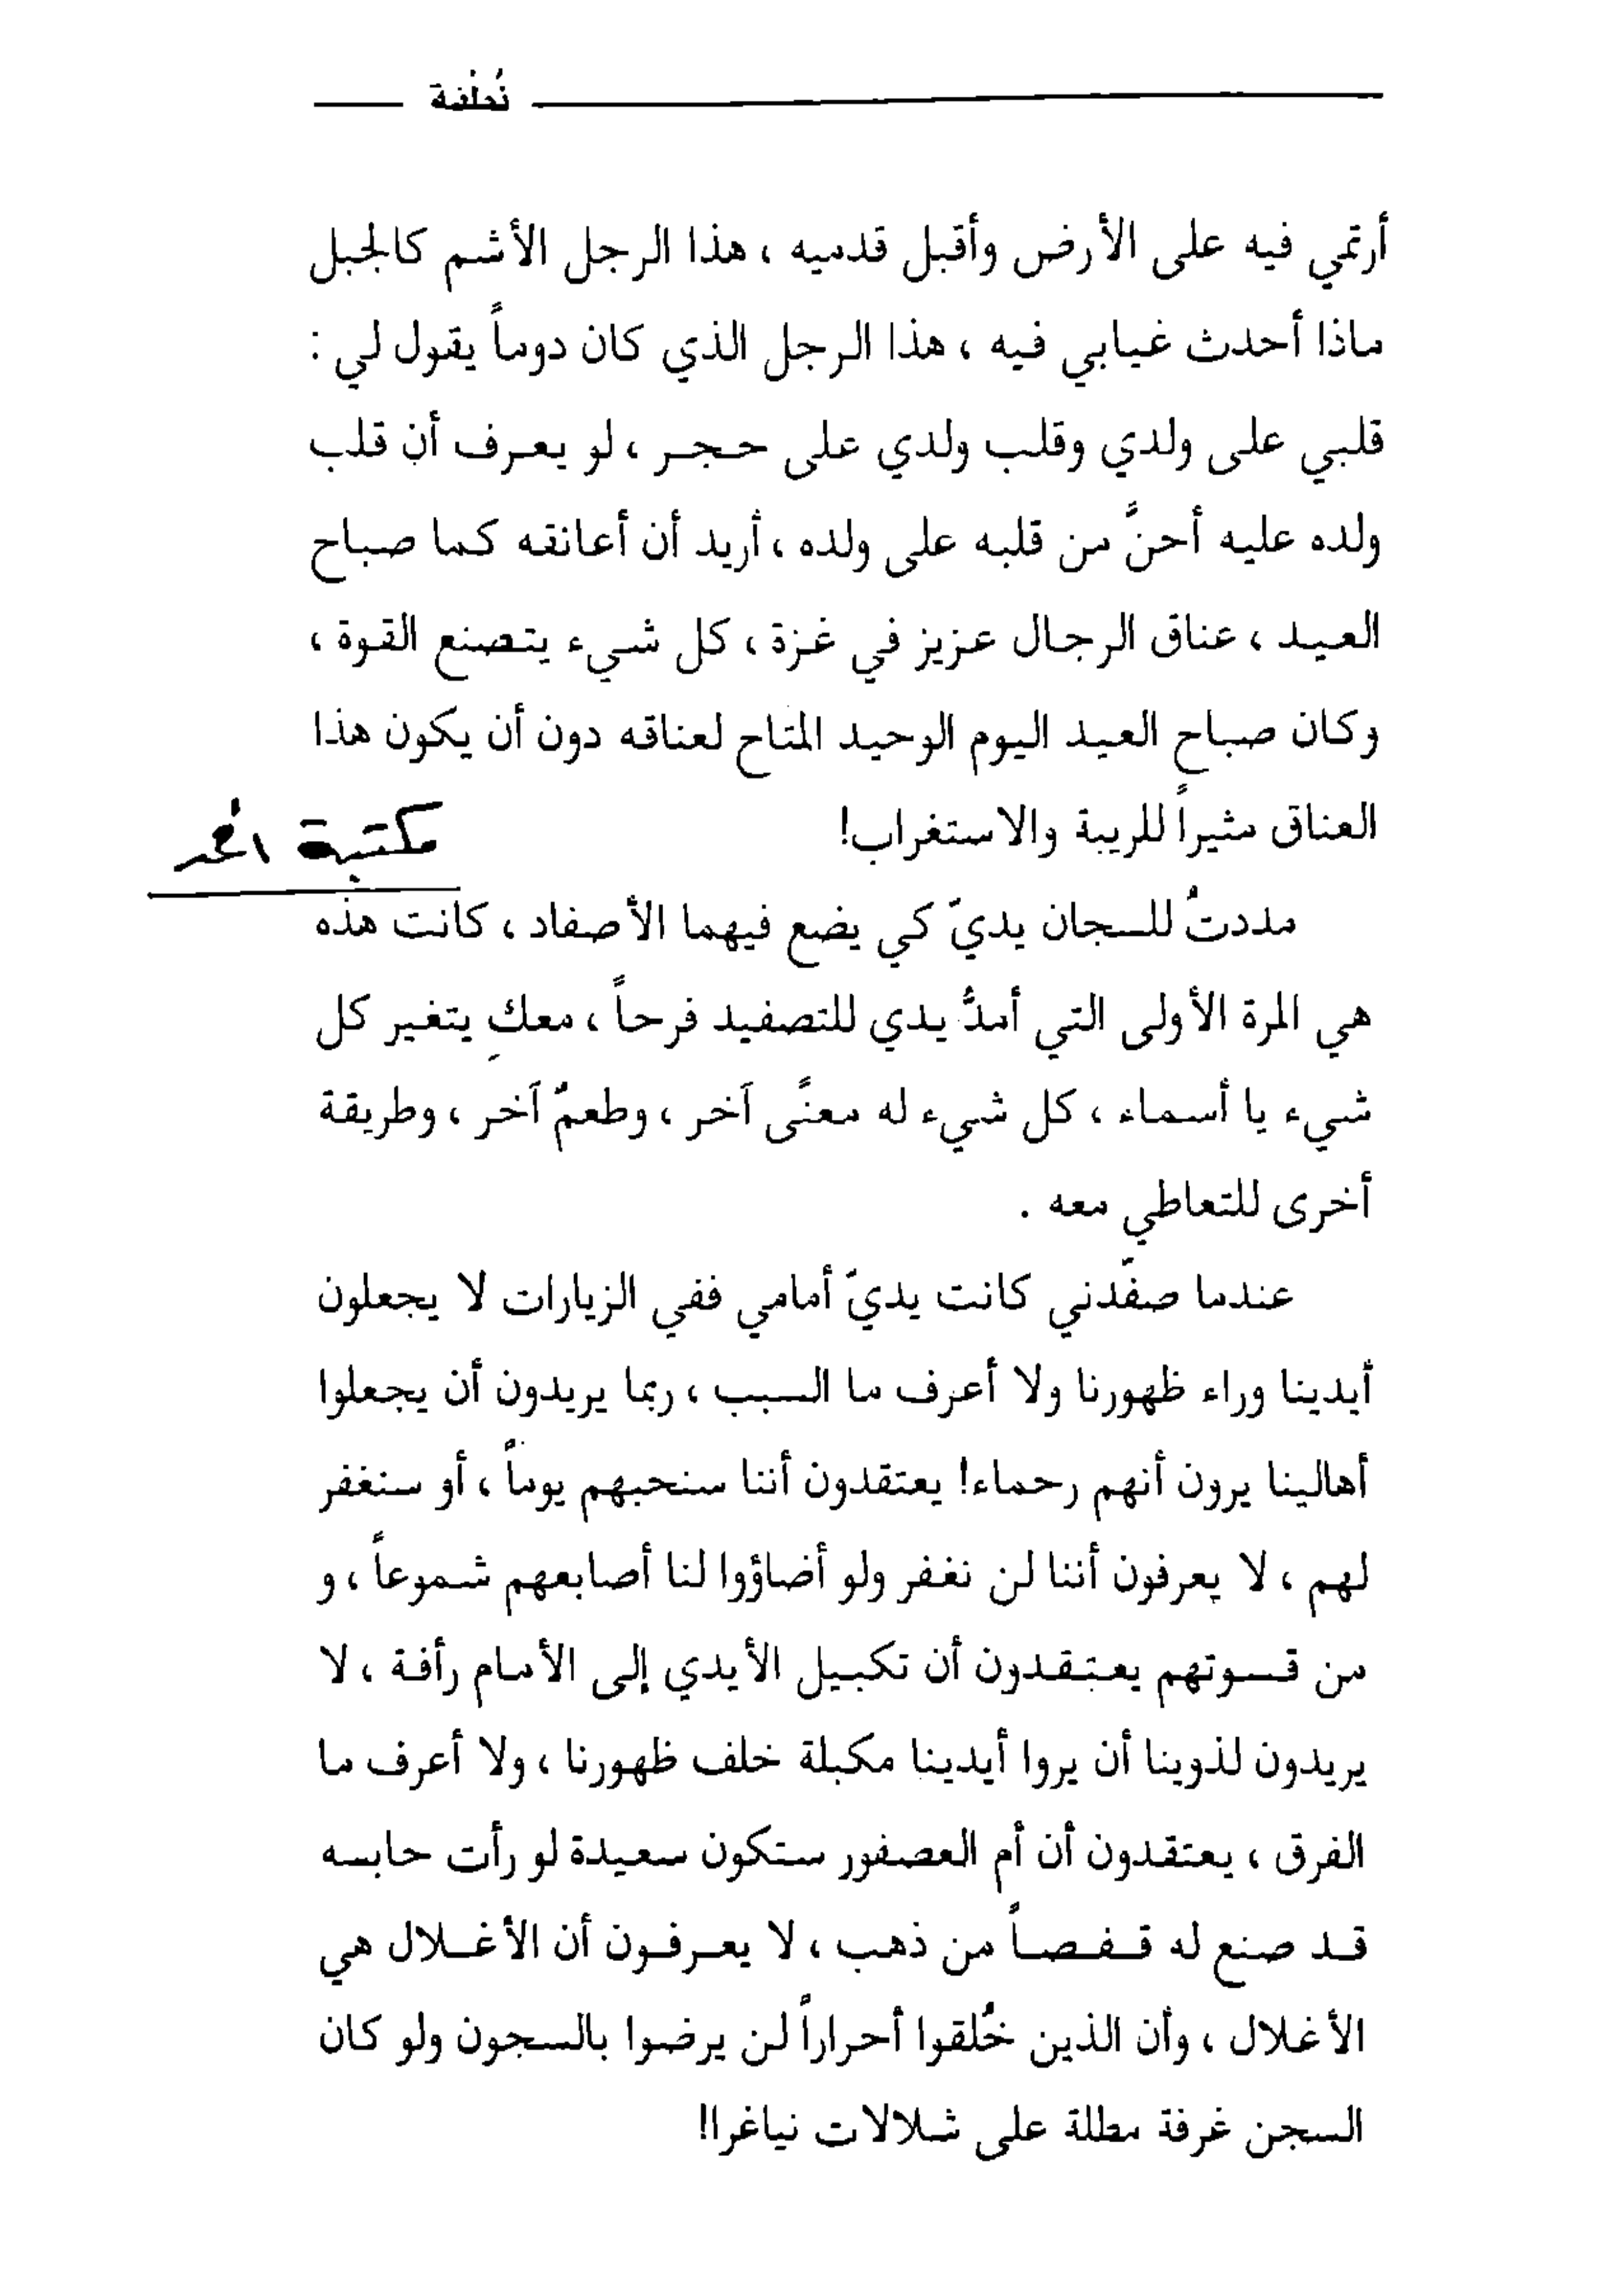 نُطْفة
أرتمي فيه على الأرض وأقبل قدميه ، هذا الرجل الأشم كالجبل
ماذا أحدث غيابي فيه ، هذا الرجل الذي كان دوماً يقول لي :
قلبي على ولدي وقلب ولدي على حجر ، لو يعرف أن قلب
ولده عليه أحنًّ من قلبه على ولده ، أريد أن أعانقه كما صباح
العيد ، عناق الرجال عزيز في غزة ، كل شيء يتصنع القوة ،
وكان صباح العيد اليوم الوحيد المتاح لعناقه دون أن يكون هذا
العناق مثيراً للريبة والاستغراب!
مكتبة
مددتُ للسجان يديّ كي يضع فيهما الأصفاد ، كانت هذه
هي المرة الأولى التي أمدُّ يدي للتصفيد فرحاً ، معكِ يتغير كل
شيء يا أسماء ، كل شيء له معنًى آخر ، وطعمٌ آخر ، وطريقة
أخرى للتعاطي معه .
عندما صفّدني كانت يديّ أمامي ففي الزيارات لا يجعلون
أيدينا وراء ظهورنا ولا أعرف ما السبب ، ربما يريدون أن يجعلوا
أهالينا يرون أنهم رحماء! يعتقدون أننا سنحبهم يوماً ، أو سنغفر
لهم ، لا يعرفون أننا لن نغفر ولو أضاؤوا لنا أصابعهم شموعاً ، و
من قسوتهم يعتقدون أن تكبيل الأيدي إلى الأمام رأفة ، لا
يريدون لذوينا أن يروا أيدينا مكبلة خلف ظهورنا ، ولا أعرف ما
الفرق ، يعتقدون أن أم العصفور ستكون سعيدة لو رأت حابسه
قد صنع له قفصاً من ذهب ، لا يعرفون أن الأغلال هي
الأغلال ، وأن الذين خُلقوا أحراراً لن يرضوا بالسجون ولو كان
السجن غرفة مطلة على شلالات نياغرا!